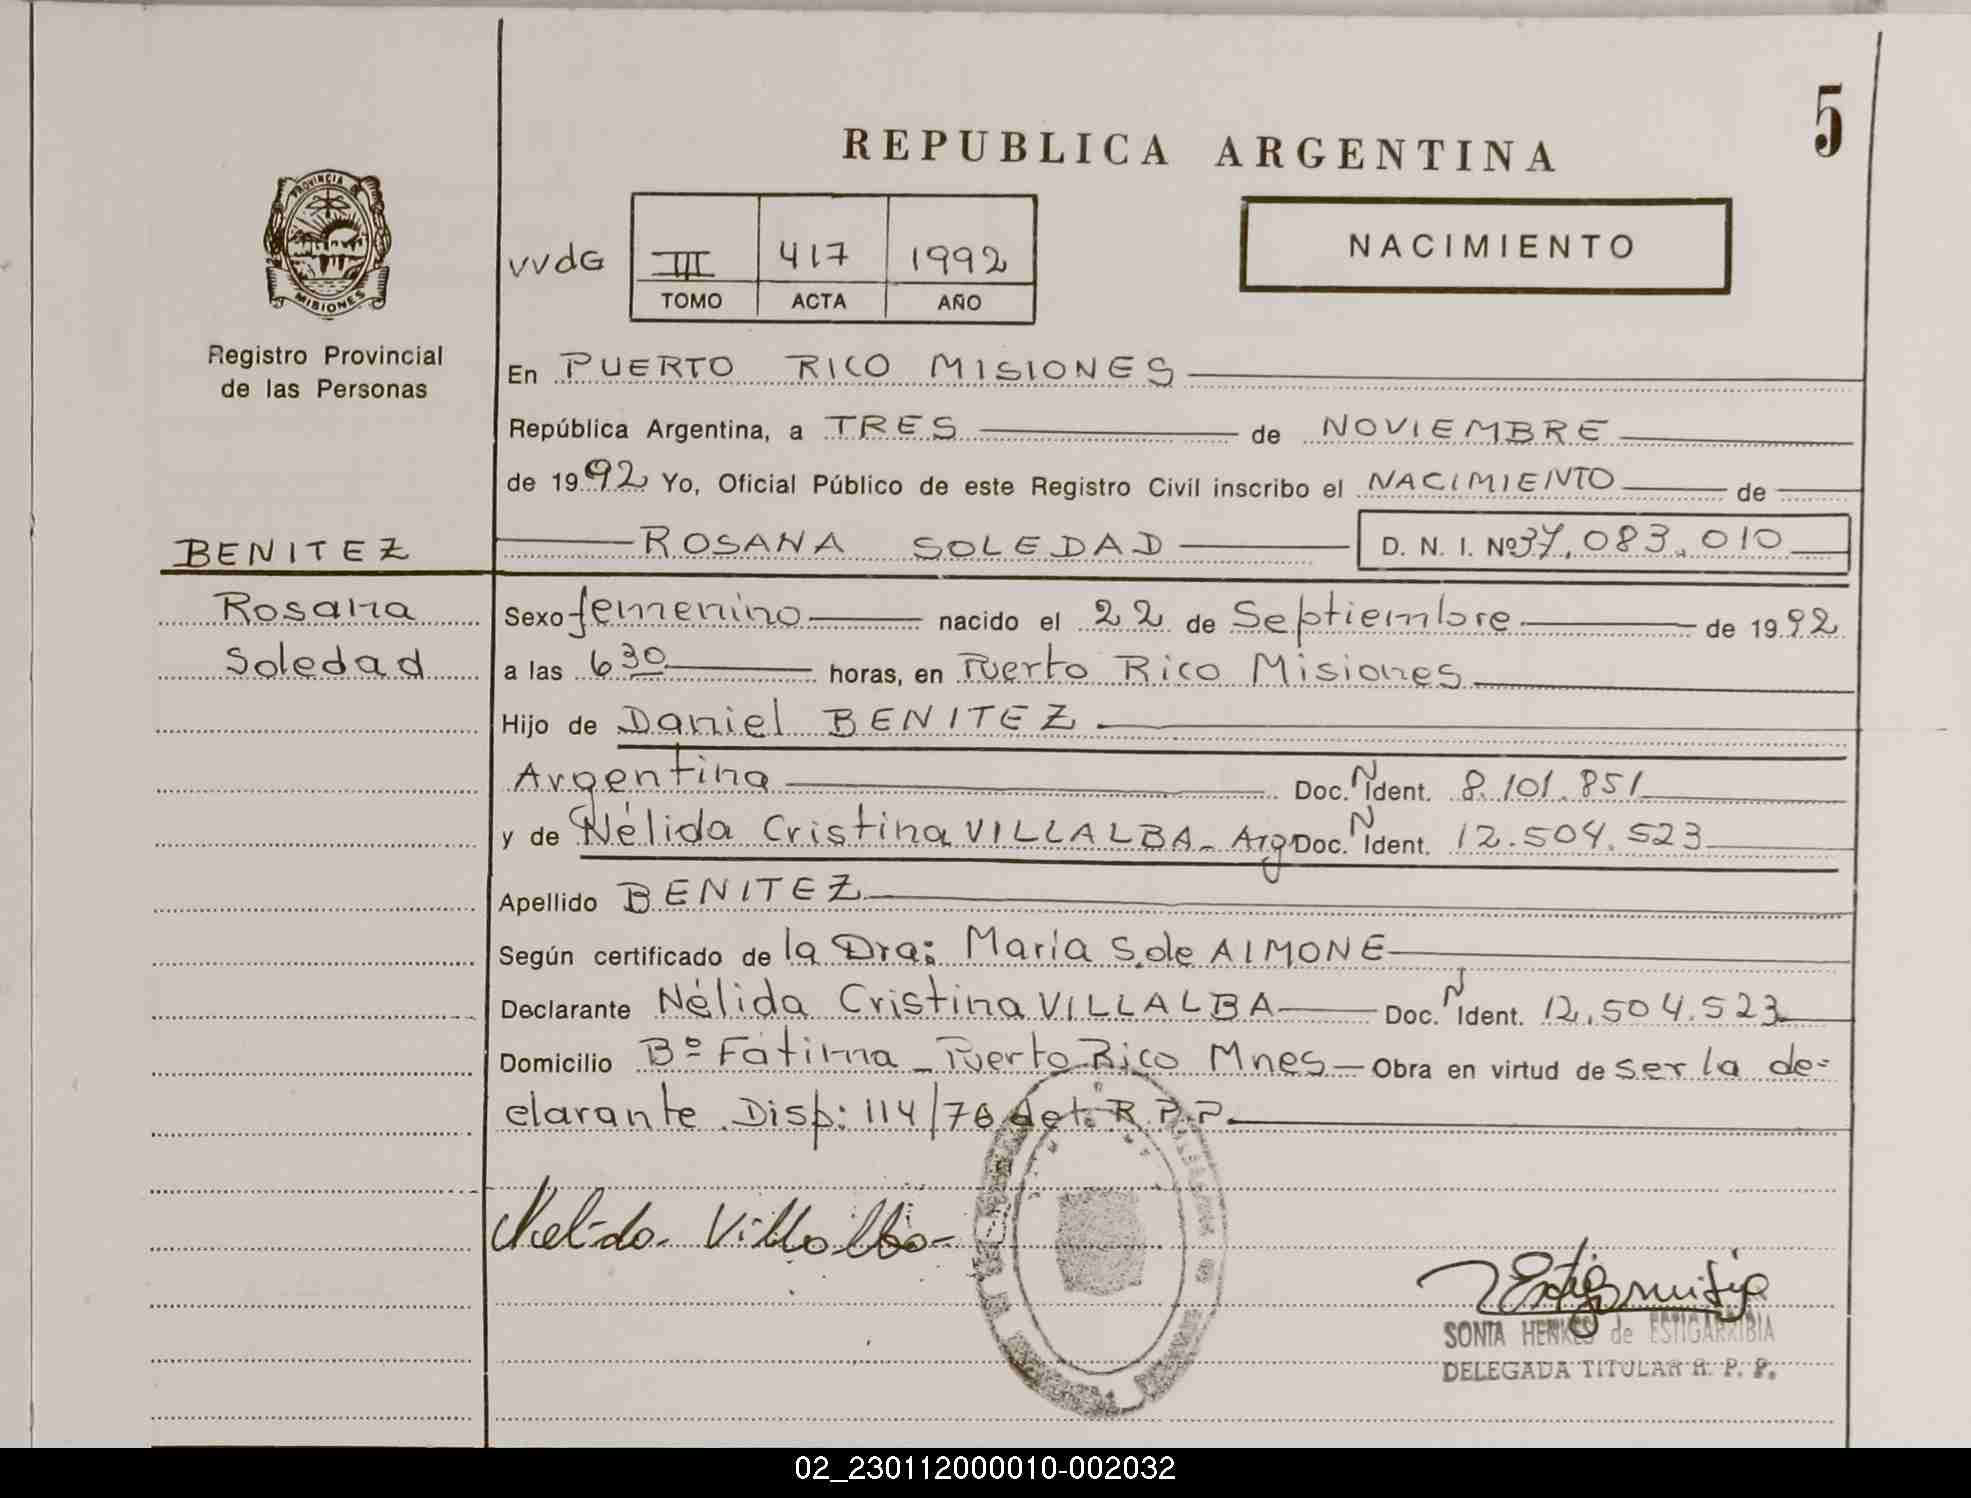 5
REPUBLICA ARGENTINA
PROVINCIA DE
MISIONES
NACIMIENTO
vvdG III 417 1992
TOMO ACTA AÑO
Registro Provincial
de las Personas
En PUERTO RICO MISIONES
República Argentina, a TRES de NOVIEMBRE
de 1992 Yo, Oficial Público de este Registro Civil inscribo el NACIMIENTO de
BENITEZ ROSANA SOLEDAD D. N. I. Nº 37.083.010
Rosana Sexo femenino nacido el 22 de Septiembre de 1992
Soledad a las 6 30 horas, en Puerto Rico Misiones
Hijo de Daniel BENITEZ
Argentina Doc. N Ident. 8.101.851
y de Nélida Cristina VILLALBA - Arg Doc. N Ident. 12.504.523
Apellido BENITEZ
Según certificado de la Dra: María Sole AIMONE
Declarante Nélida Cristina VILLALBA Doc. N Ident. 12.504.523
Domicilio Bº Fátima - Puerto Rico Mnes - Obra en virtud de ser la de=
clarante Disp: 114/76 del R.P.P.
Nelida Villalba
SONIA HENKES de ESTIGARRIBIA
DELEGADA TITULAR R. P. P.
02_230112000010-002032